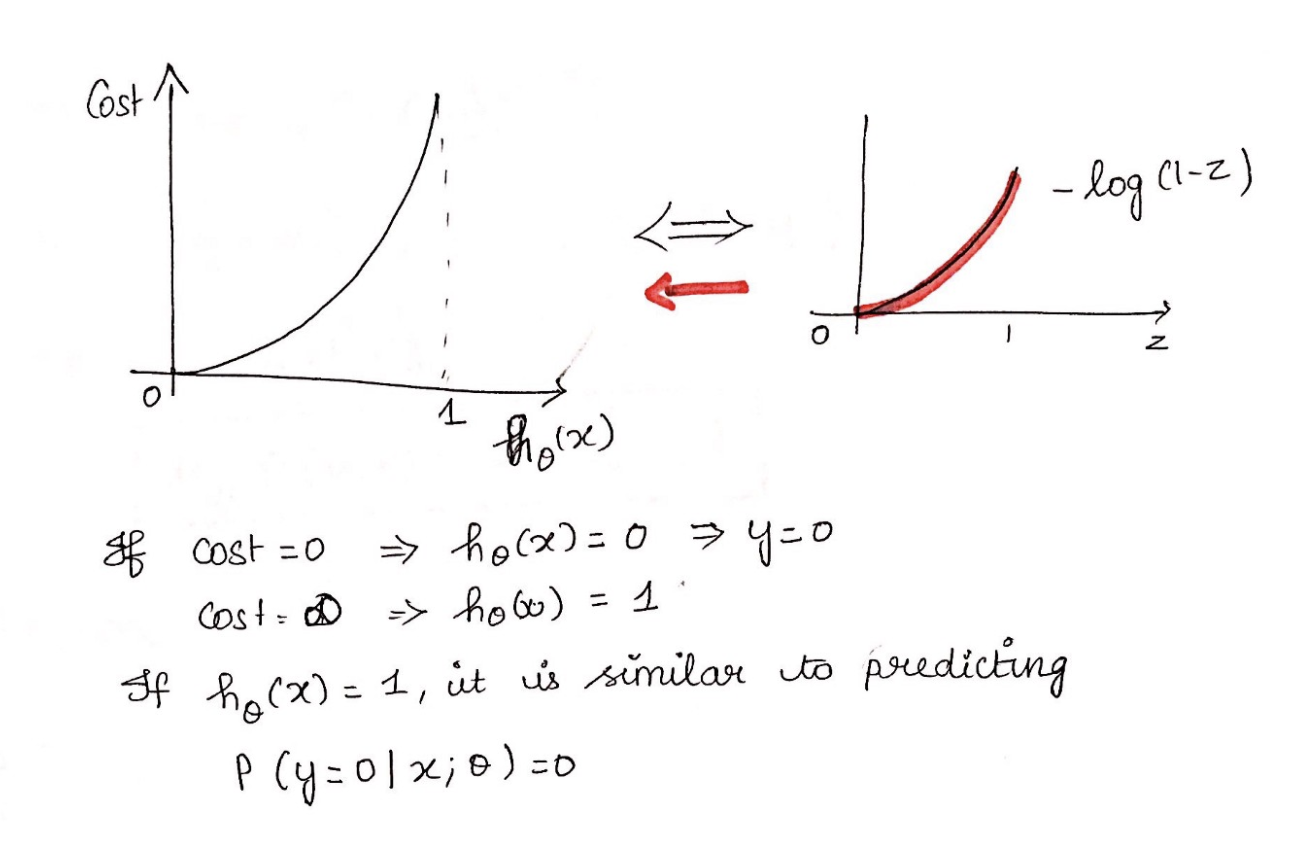 Cost
-log (1-z)
0
1
z
0
1
hθ(x)
If cost = 0 ⇒ hθ(x) = 0 ⇒ y=0
Cost = ∞ ⇒ hθ(x) = 1
If hθ(x) = 1, it is similar to predicting
P (y=0 | x; θ) = 0